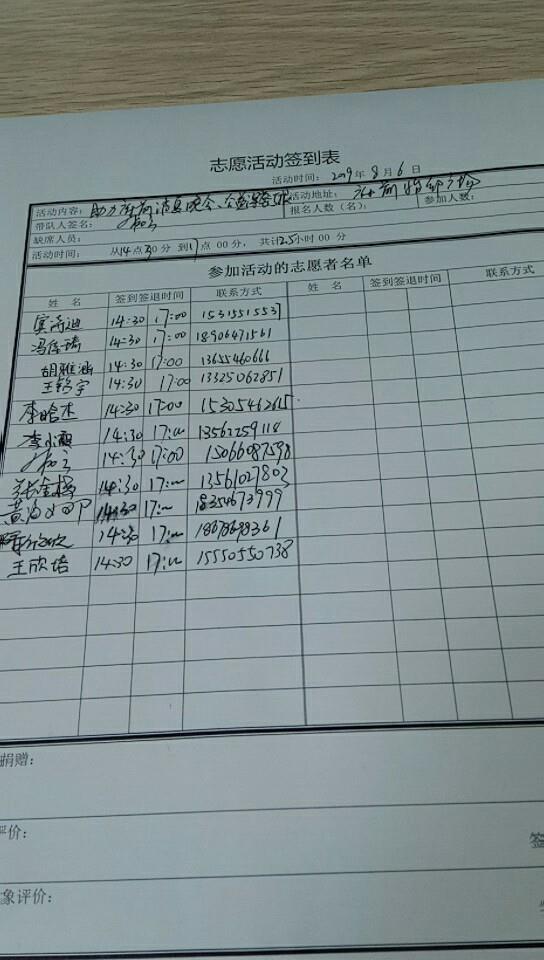 志愿活动签到表
活动时间：2019年8月6日
活动内容：助力 消夏晚会、公益 活动地址：
带队人签名： 报名人数（名）： 参加人数：
缺席人员：
活动时间： 从14点30分 到17点00分， 共计2.5小时00分
参加活动的志愿者名单
姓 名 签到签退时间 联系方式 姓 名 签到签退时间 联系方式
14:30 17:00 15315515537
冯 14:30 17:00 18906471561
胡雅涵 14:30 17:00 13655460666
王 宇 14:30 17:00 13325062851
李晗杰 14:30 17:00 15305462615
李小 14:30 17:00 13562259118
14:30 17:00 15066087598
张 14:30 17:00 13561027803
黄 14:30 17:00 18354673999
14:30 17:00 18678698361
王欣培 14:30 17:00 15550550738
捐赠：
评价：
签
象评价：